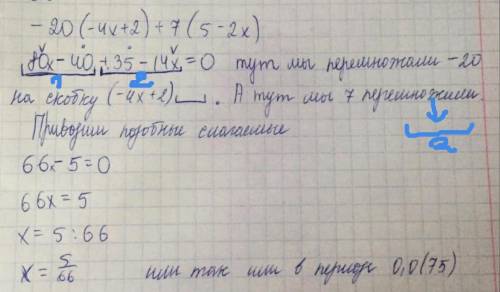 -20(-4x+2)+7(5-2x)
80x-40+35-14x=0 тут мы перемножали -20
1 2
на скобку (-4x+2). А тут мы 7 перемножили
2
Приводим подобные слагаемые
66x-5=0
66x=5
x=5:66
x=5/66 или так или в периоде 0,0(75)